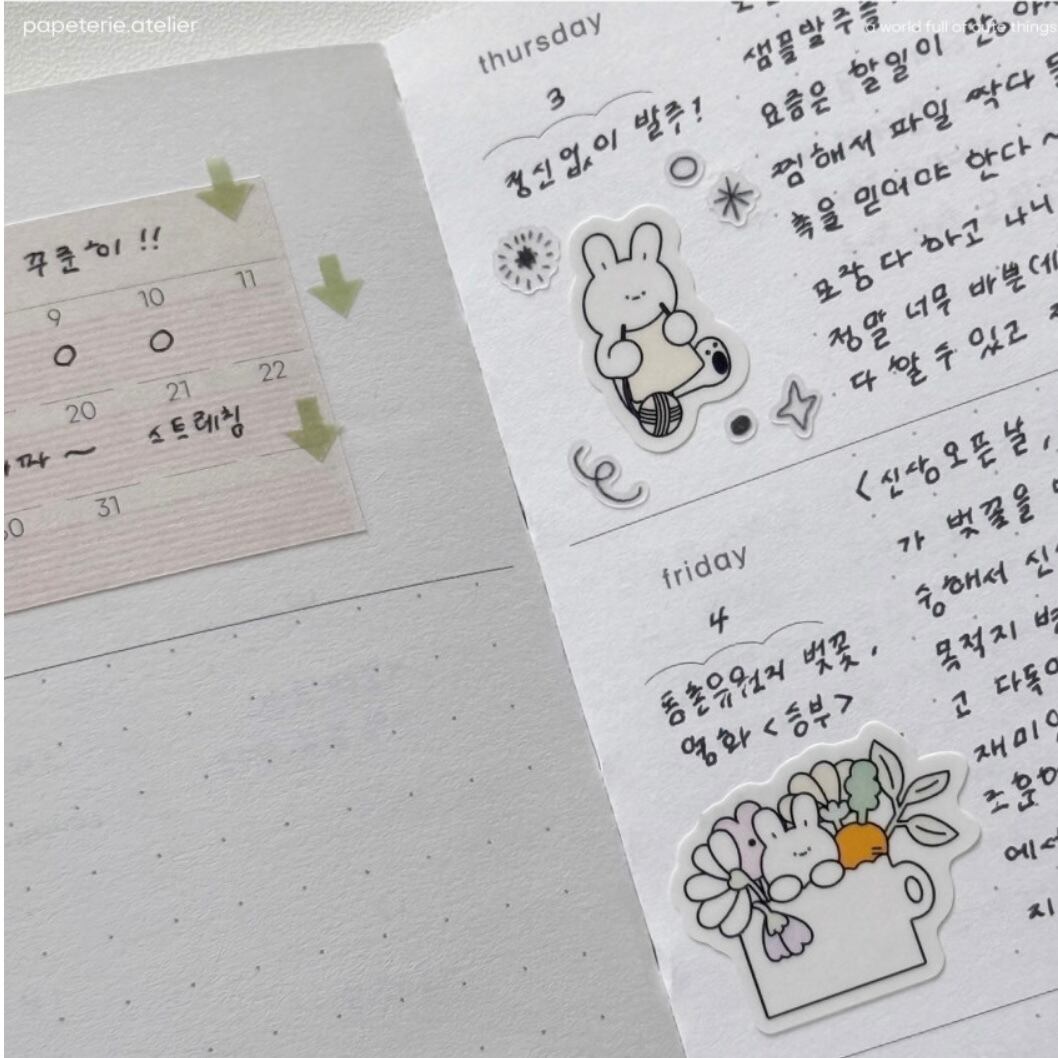 papeterie.atelier
a world full of cute things
꾸준히 !!
9 10 11
20 21 22
스트레칭
30 31
thursday
3
정신 없이 발주!
샘플발주를
요즘은 할일이
찜해서 파일 싹다
촉을 믿어야 한다~
포장 다 하고 나니
정말 너무 바쁜데
다 할 수 있고
friday
4
동촌유원지 벚꽃,
영화 <승부>
<신상 오픈 날,
가 벚꽃을
숭해서
목적지
고
재미있
에서
지